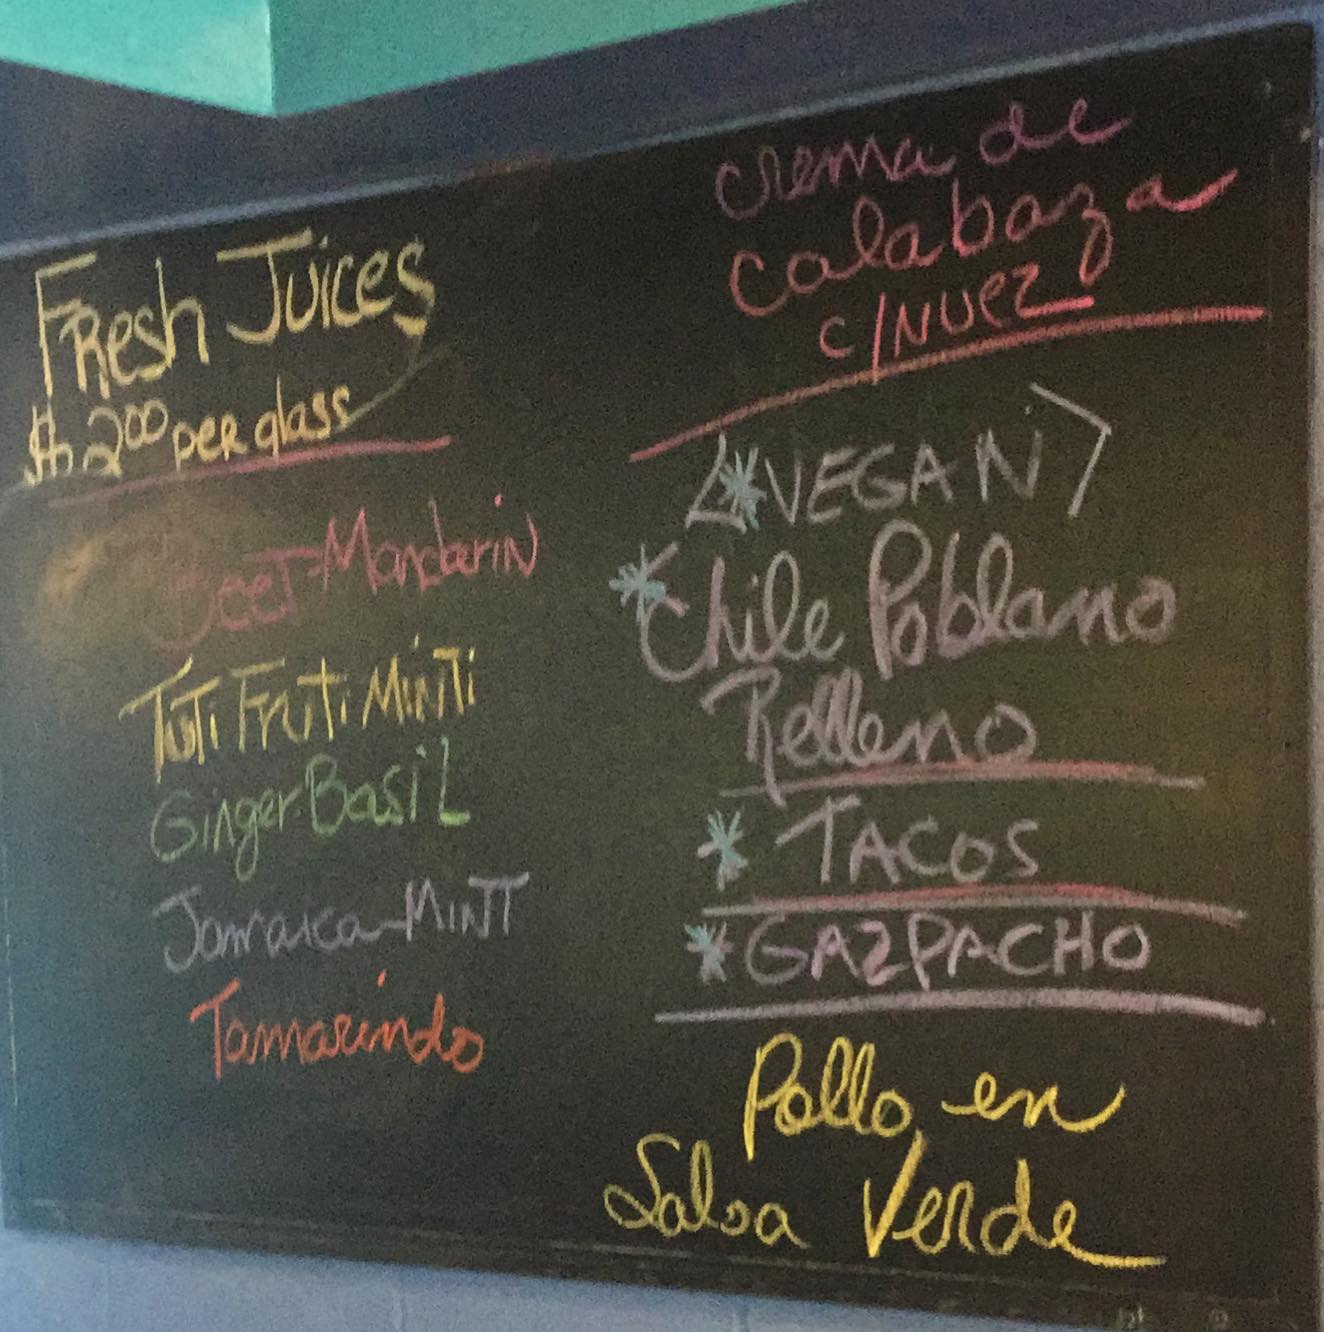 Fresh Juices
$ 2.00 per glass
Beet-Mandarin
Tuti Fruti Minti
Ginger Basil
Jamaica-Mint
Tamarindo
crema de
calabaza
c/nuez
*VEGAN
*Chile Poblano
Relleno
* TACOS
*GAZPACHO
Pollo en
Salsa Verde